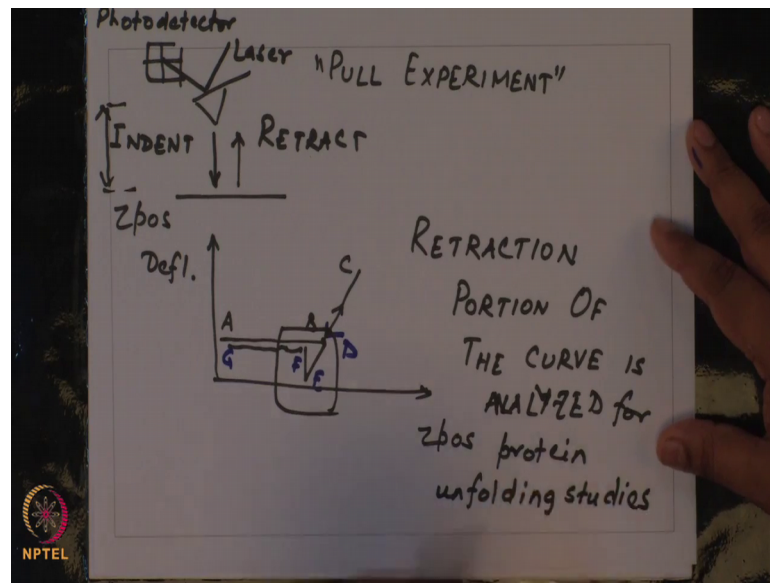 Photodetector
Laser
"PULL EXPERIMENT"
INDENT
RETRACT
Zpos
Defl.
RETRACTION
PORTION OF
THE CURVE IS
ANALYZED for
protein
unfolding studies
A
B
C
D
G
F
E
zpos
NPTEL